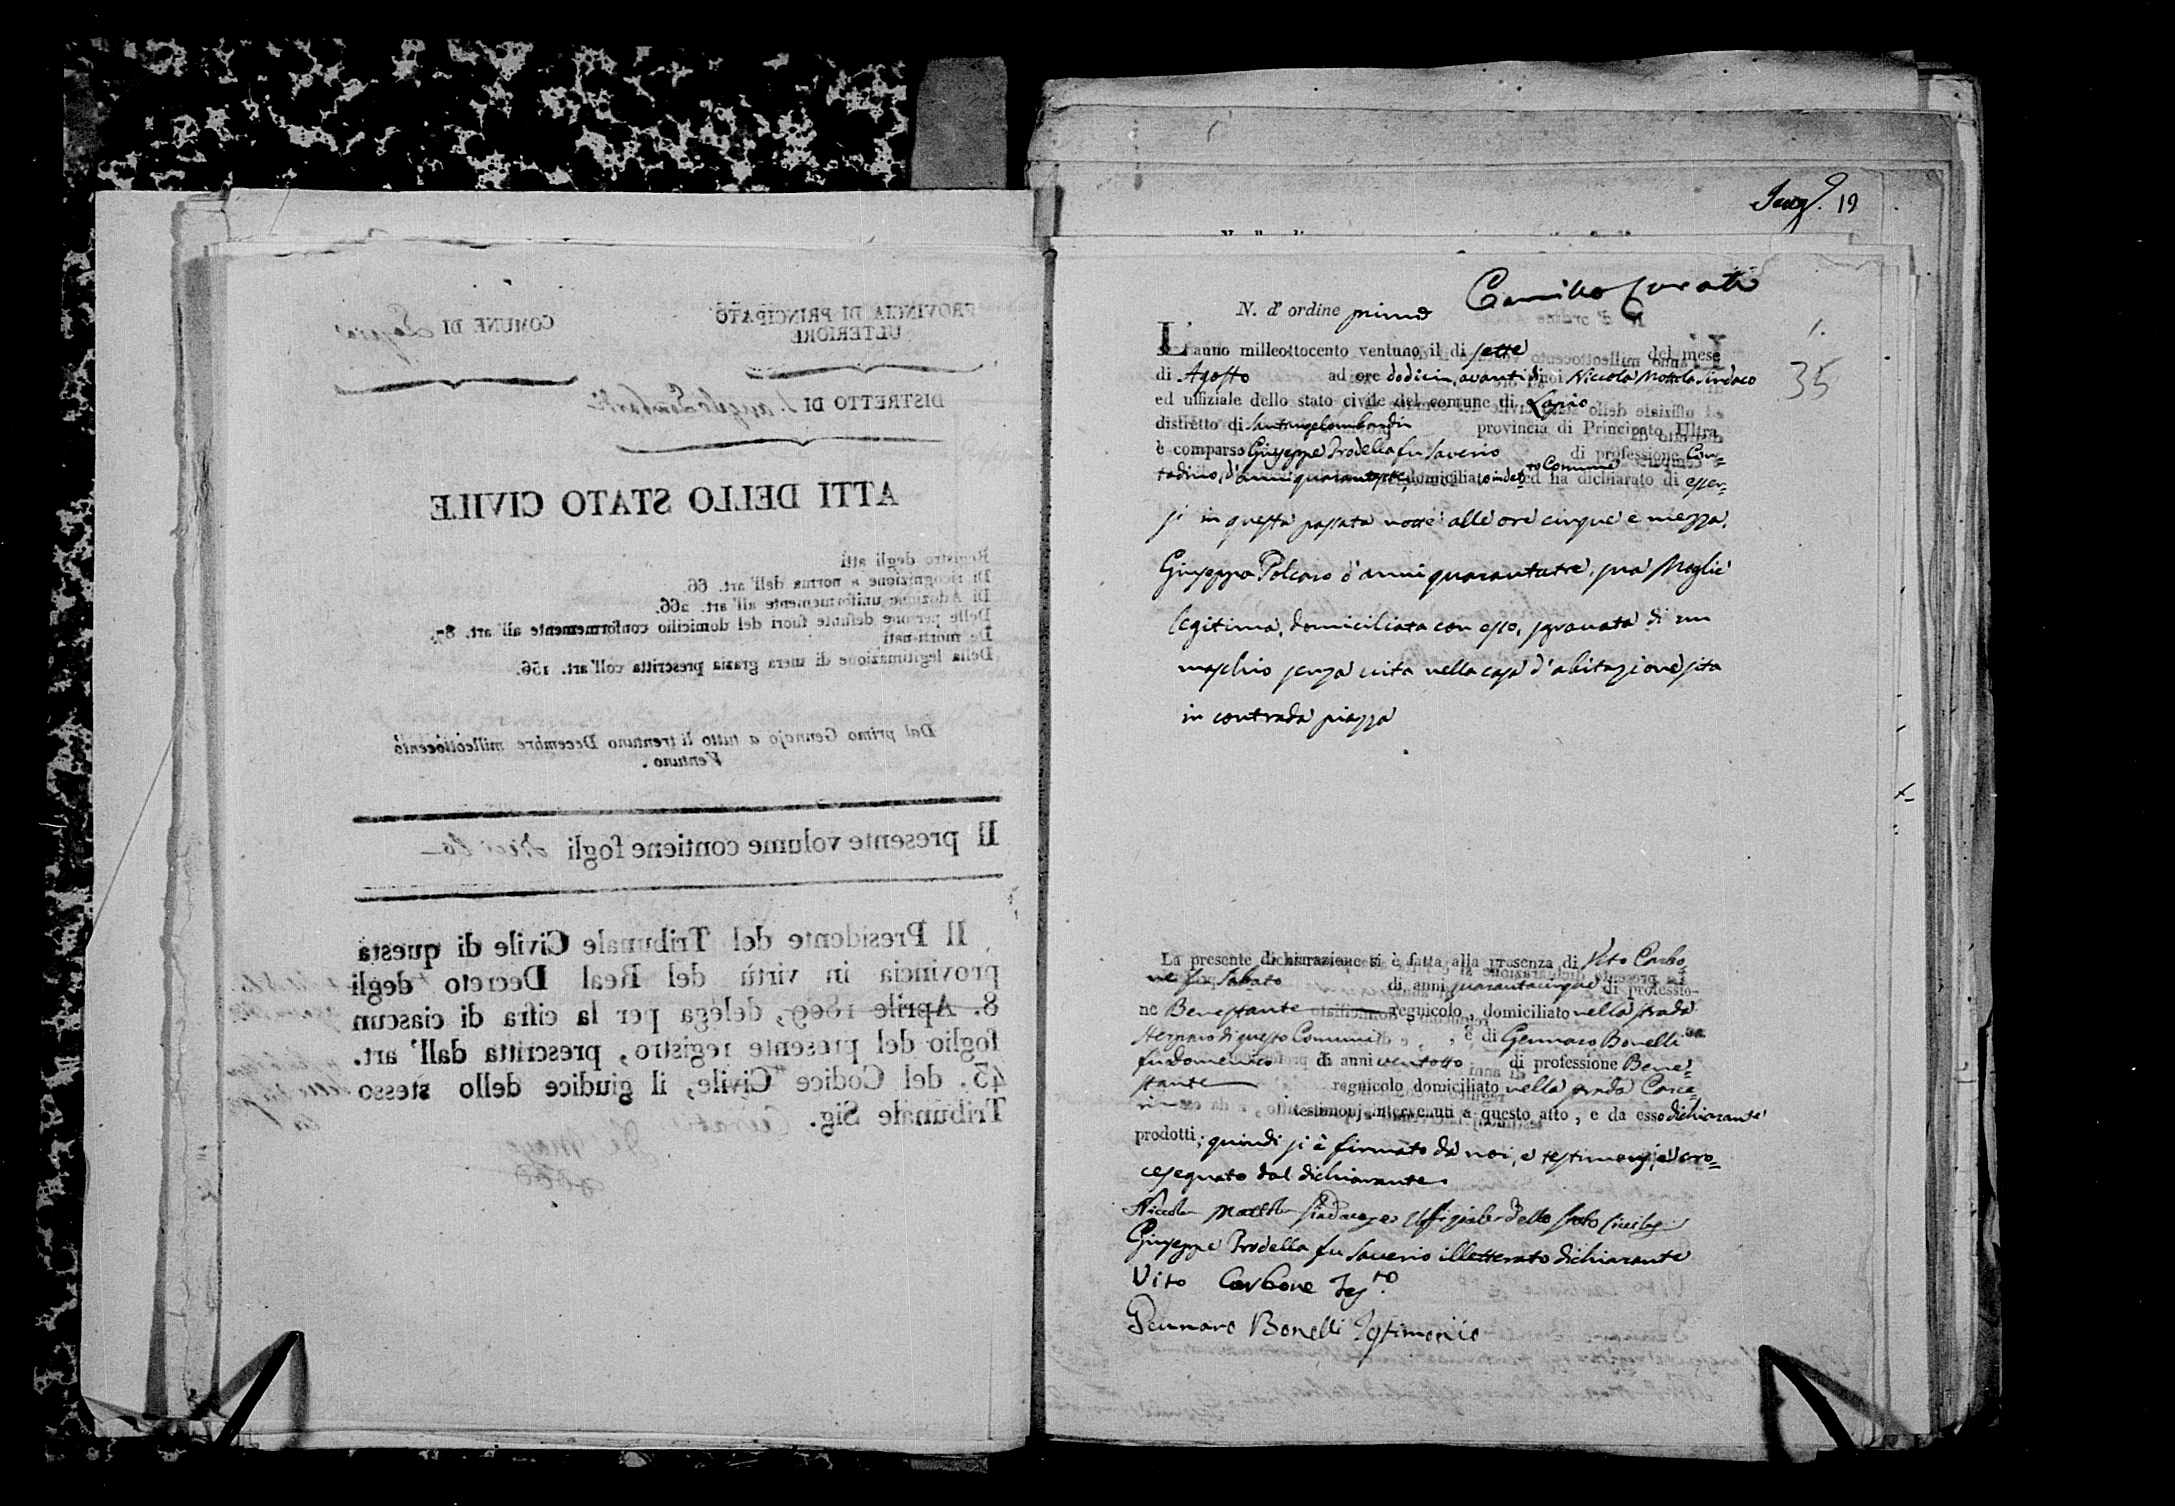 PROVINCIA DI PRINCIPATO
ULTERIORE
COMUNE DI
DISTRETTO DI S. Angelo Lombardi
ATTI DELLO STATO CIVILE
Registro degli atti
Di ricognizione a norma dell' art. 66.
Di Adozione uniformemente all' art. 266.
Delle persone defunte fuori del domicilio conformemente all' art. 87.
De' morti-nati
Della legitimazione di mera grazia prescritta coll' art. 156.
Dal primo Gennajo a tutto li trentuno Decembre milleottocento
Ventuno.
Il presente volume contiene fogli
Il Presidente del Tribunale Civile di questa
provincia in virtù del Real Decreto degli
8. Aprile 1809, delega per la cifra di ciascun
foglio del presente registro, prescritta dall' art.
43. del Codice Civile, il giudice dello stesso
Tribunale Sig.
19
Camillo Curati
N. d' ordine primo
1.
35
L' anno milleottocento ventuno il di sette del mese
di Agosto ad ore dodici, avanti di noi Niccola Mottola Sindaco
ed uffiziale dello stato civile del comune di Lapio
distretto di Santangelombardi provincia di Principato Ultra
è comparso Giuseppe Prodella fu Saverio di professione Con=
tadino, d'anni domiciliato in det=to Comune ed ha dichiarato di esser=
si in questa passata notte alle ore cinque e mezza,
Giuseppa Polcaro d'anni quarantatre, sua Moglie
legitima, domiciliata con esso, sgravata di un
maschio senza vita nella casa d'abitazione sita
in contrada piazza
La presente dichiarazione si è fatta alla presenza di Vito Carbo=
ne fu Sabato di anni quarantacinque di professio-
ne Benestante regnicolo, domiciliato nella strada
di questo Comune, e di Gennaro Bonelli
fu Domenico di anni ventotto di professione Bene=
stante regnicolo domiciliato nella strada
testimonj intervenuti a questo atto, e da esso dichiarante
prodotti; quindi si è firmato da noi, e testimonj, e cro=
cesegnato dal dichiarante.
Niccola Mottola Sindaco, ed Uffiziale dello Stato Civile
Giuseppe Prodella fu Saverio illetterato dichiarante
Vito Carbone Tes.to
Gennaro Bonelli Testimonio